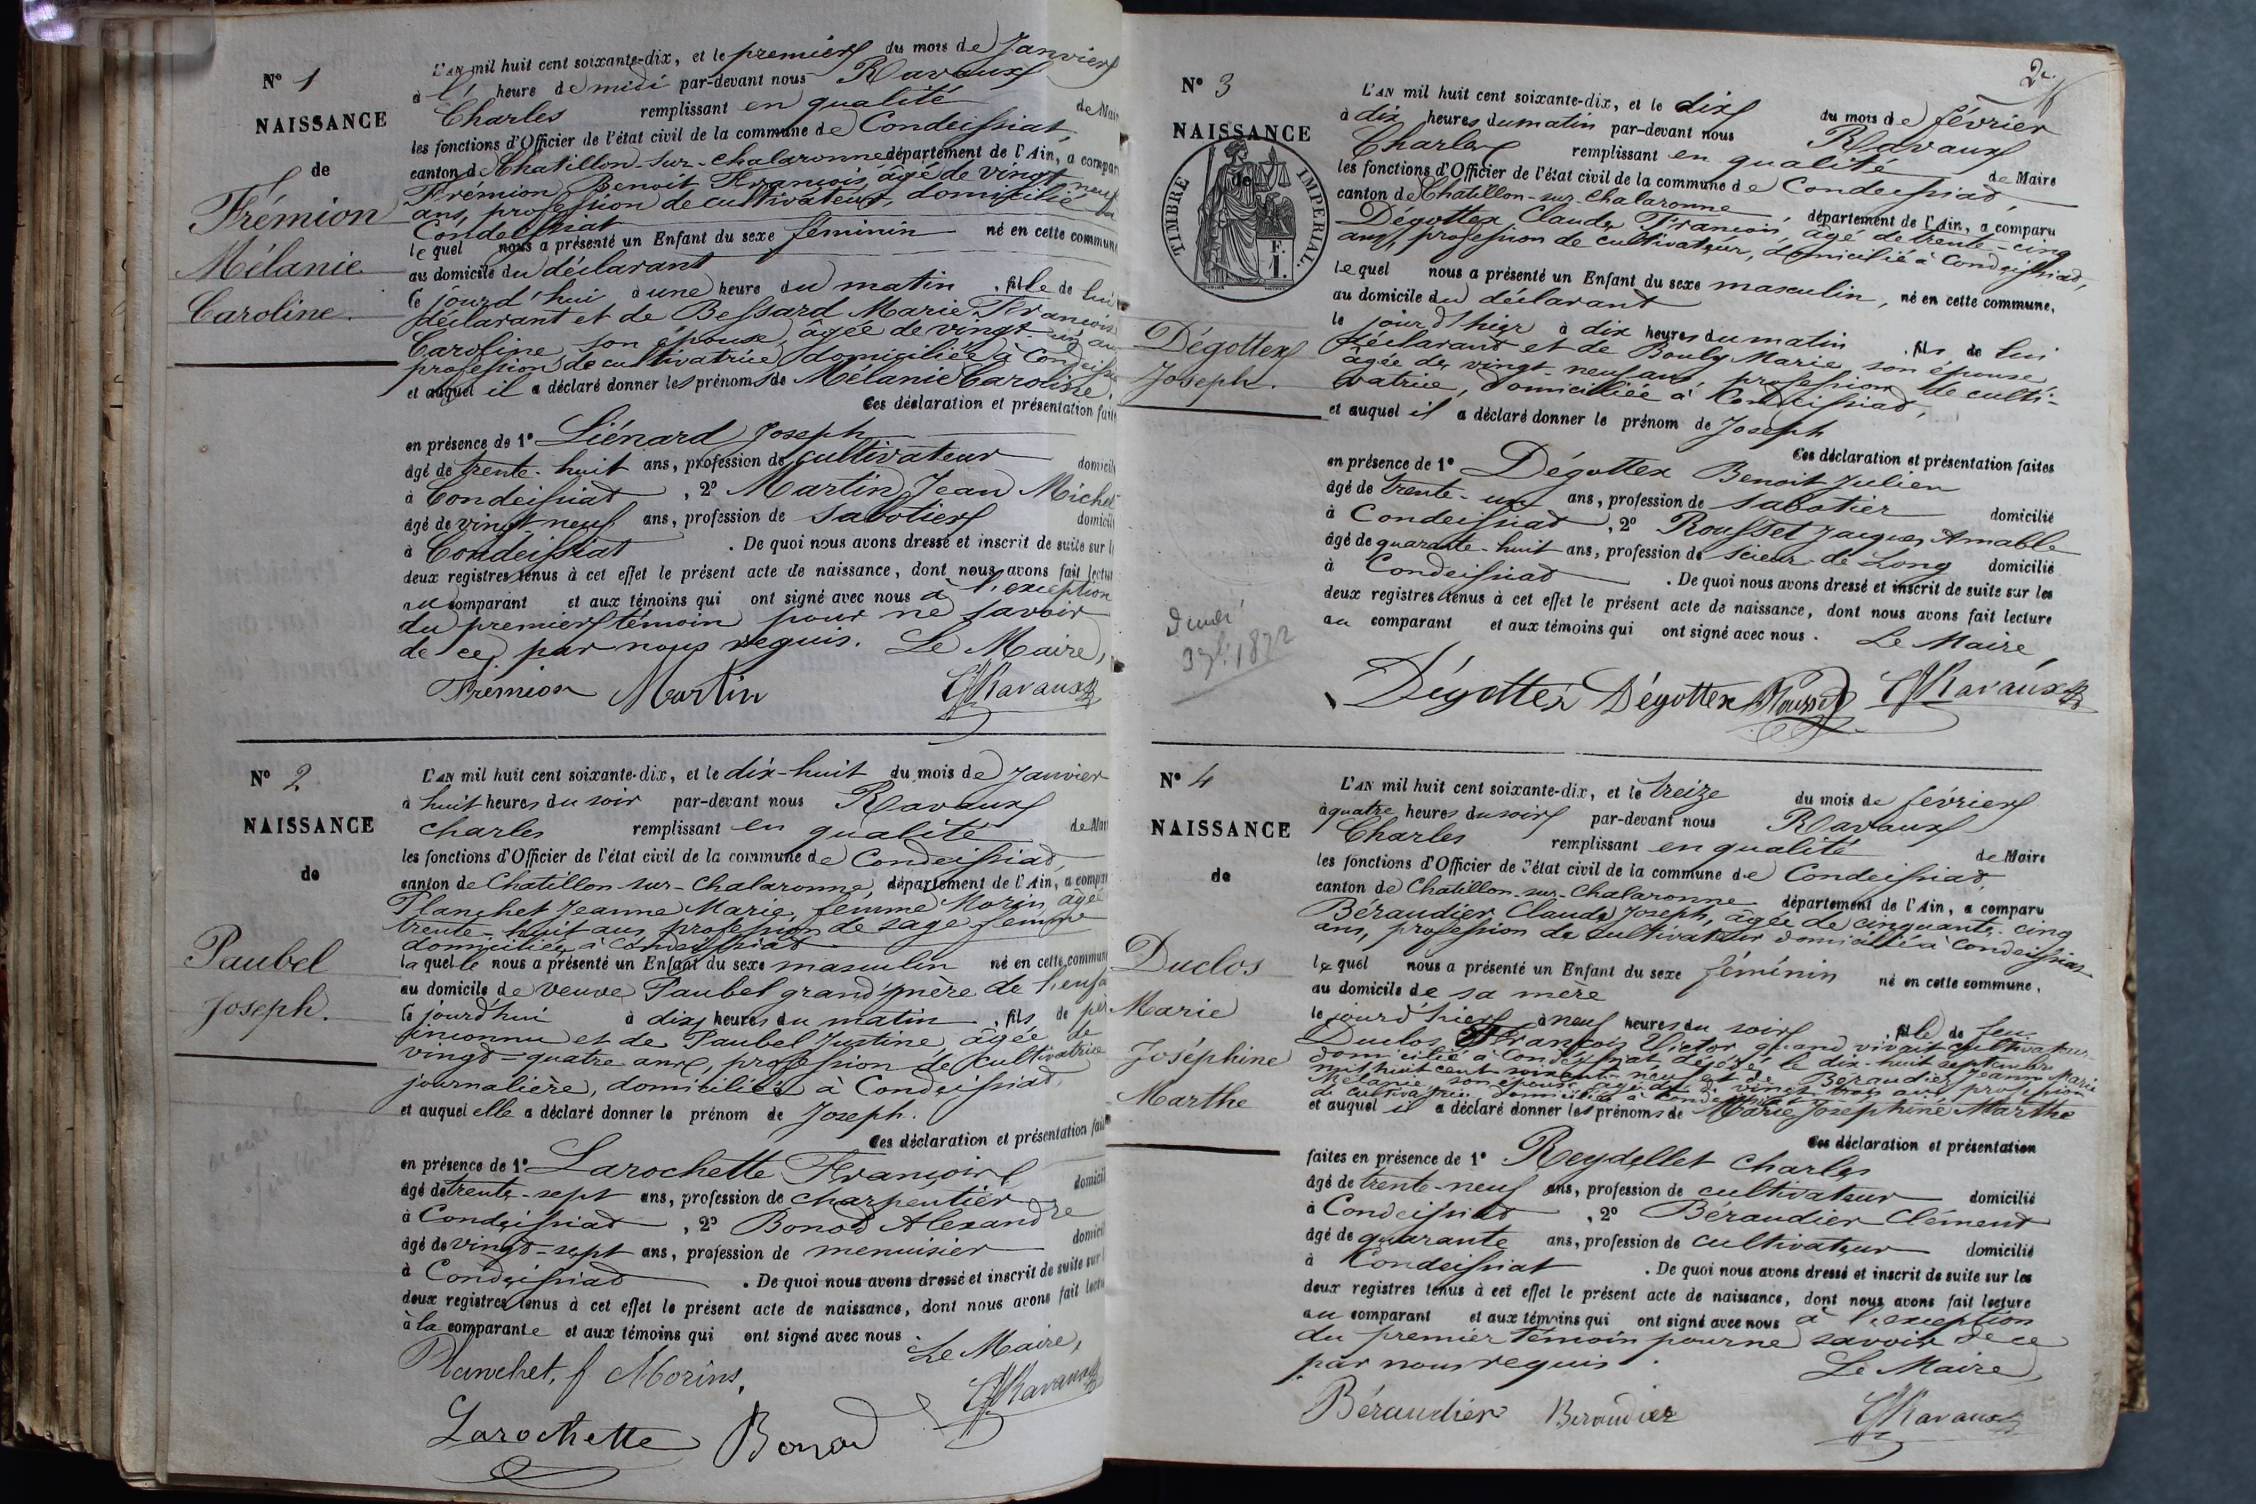 N° 1
NAISSANCE
de
Frémion
Mélanie
Caroline.
L'AN mil huit cent soixante-dix, et le premier du mois de Janvier
à l' heure de midi par-devant nous Ravaux
Charles remplissant en qualité de Mai
les fonctions d'Officier de l'état civil de la commune de Condeissiat
canton de Chatillon-sur-Chalaronne département de l'Ain, a compar
Frémion Benoit François, âgé de vingt neuf
ans, profession de cultivateur, domicilié
Condeissiat
le quel nous a présenté un Enfant du sexe féminin né en cette commune
au domicile du déclarant
le jourd'hui à une heure du matin , fille de lui
déclarant et de Bessard Marie Françoise
Caroline son épouse, âgée de vingt
profession de cultivatrice domiciliée à Condeissiat
et auquel il a déclaré donner les prénoms de Mélanie Caroline.
Ces déclaration et présentation faites
en présence de 1° Liénard Joseph
âgé de trente-huit ans, profession de cultivateur domicili
à Condeissiat , 2° Martin Jean Michel
âgé de vingt neuf ans, profession de sabotier domicili
à Condeissiat . De quoi nous avons dressé et inscrit de suite sur l
deux registres tenus à cet effet le présent acte de naissance, dont nous avons fait lectu
au comparant et aux témoins qui ont signé avec nous à l'exception
du premier témoin pour ne savoir
de ce par nous requis. Le Maire,
Frémion Martin Ravaux
N° 2
NAISSANCE
de
Paubel
Joseph.
L'AN mil huit cent soixante-dix, et le dix-huit du mois de Janvier
à huit heures du soir par-devant nous Ravaux
Charles remplissant en qualité de Mai
les fonctions d'Officier de l'état civil de la commune de Condeissiat
canton de Chatillon-sur-Chalaronne, département de l'Ain, a compar
Planchet Jeanne Marie, femme Morin, âgée
trente-huit ans, profession de sage femme
domiciliée à Condeissiat
la quelle nous a présenté un Enfant du sexe masculin né en cette commune
au domicile de veuve Paubel grand'mère de l'enfa
le jourd'hui à dix heures du matin , fils de père
inconnu et de Paubel Justine, âgée de
vingt-quatre ans, profession de cultivatrice
journalière, domiciliée à Condeissiat
et auquel elle a déclaré donner le prénom de Joseph.
Ces déclaration et présentation fai
en présence de 1° Larochette François
âgé de trente-sept ans, profession de charpentier domicil
à Condeissiat , 2° Bonod Alexandre
âgé de vingt-sept ans, profession de menuisier domicil
à Condeissiat . De quoi nous avons dressé et inscrit de suite sur l
deux registres tenus à cet effet le présent acte de naissance, dont nous avons fait lectu
à la comparante et aux témoins qui ont signé avec nous. Le Maire,
Planchet. f Morins, Ravaux
Larochette Bonod
2e.
N° 3
NAISSANCE
de
TIMBRE IMPERIAL.
F.
1.
Dégottex
Joseph.
L'AN mil huit cent soixante-dix, et le dix du mois de février
à dix heures du matin par-devant nous Ravaux
Charles remplissant en qualité de Maire
les fonctions d'Officier de l'état civil de la commune de Condeissiat,
canton de Chatillon-sur-Chalaronne, département de l'Ain, a comparu
Dégottex Claude François, âgé de trente-cinq
ans, profession de cultivateur, domicilié à Condeissiat,
le quel nous a présenté un Enfant du sexe masculin, né en cette commune,
au domicile du déclarant
le jourd'hier à dix heures du matin , fils de lui
déclarant et de Bouly Marie, son épouse,
âgée de vingt-neuf ans, profession de culti-
vatrice, domiciliée à Condeissiat,
et auquel il a déclaré donner le prénom de Joseph
Ces déclaration et présentation faites
en présence de 1° Dégottex Benoit Julien
âgé de trente-un ans, profession de sabotier domicilié
à Condeissiat , 2° Rousset Jacques Amable
âgé de quarante-huit ans, profession de scieur de Long domicilié
à Condeissiat . De quoi nous avons dressé et inscrit de suite sur les
deux registres tenus à cet effet le présent acte de naissance, dont nous avons fait lecture
au comparant et aux témoins qui ont signé avec nous. Le Maire,
Dégottex Dégottex Rousset Ravaux
N° 4
NAISSANCE
de
Duclos
Marie
Joséphine
Marthe
L'AN mil huit cent soixante-dix, et le treize du mois de février
à quatre heures du soir par-devant nous Ravaux
Charles remplissant en qualité de Maire
les fonctions d'Officier de l'état civil de la commune de Condeissiat,
canton de Chatillon-sur-Chalaronne département de l'Ain, a comparu
Béraudier Claude Joseph, âgée de cinquante-cinq
ans, profession de cultivateur domicilié à Condeissiat
le quel nous a présenté un Enfant du sexe féminin né en cette commune,
au domicile de sa mère
le jourd'hier à neuf heures du soir , fille de feu
Duclos François Victor quand vivait cultivateur
domicilié à Condeissiat décédé le dix-huit septembre
mil huit cent soixante neuf et de Beraudier Jeanne Marie
Mélanie son épouse âgée de vingt trois ans profession
de cultivatrice domiciliée à Condeissiat
et auquel il a déclaré donner les prénoms de Marie Joséphine Marthe
Ces déclaration et présentation
faites en présence de 1° Reydellet Charles
âgé de trente-neuf ans, profession de cultivateur domicilié
à Condeissiat , 2° Béraudier Clément
âgé de quarante ans, profession de cultivateur domicilié
à Condeissiat . De quoi nous avons dressé et inscrit de suite sur les
deux registres tenus à cet effet le présent acte de naissance, dont nous avons fait lecture
au comparant et aux témoins qui ont signé avec nous à l'exception
du premier témoin pour ne savoir de ce
par nous requis. Le Maire,
Béraudier Beraudier Ravaux